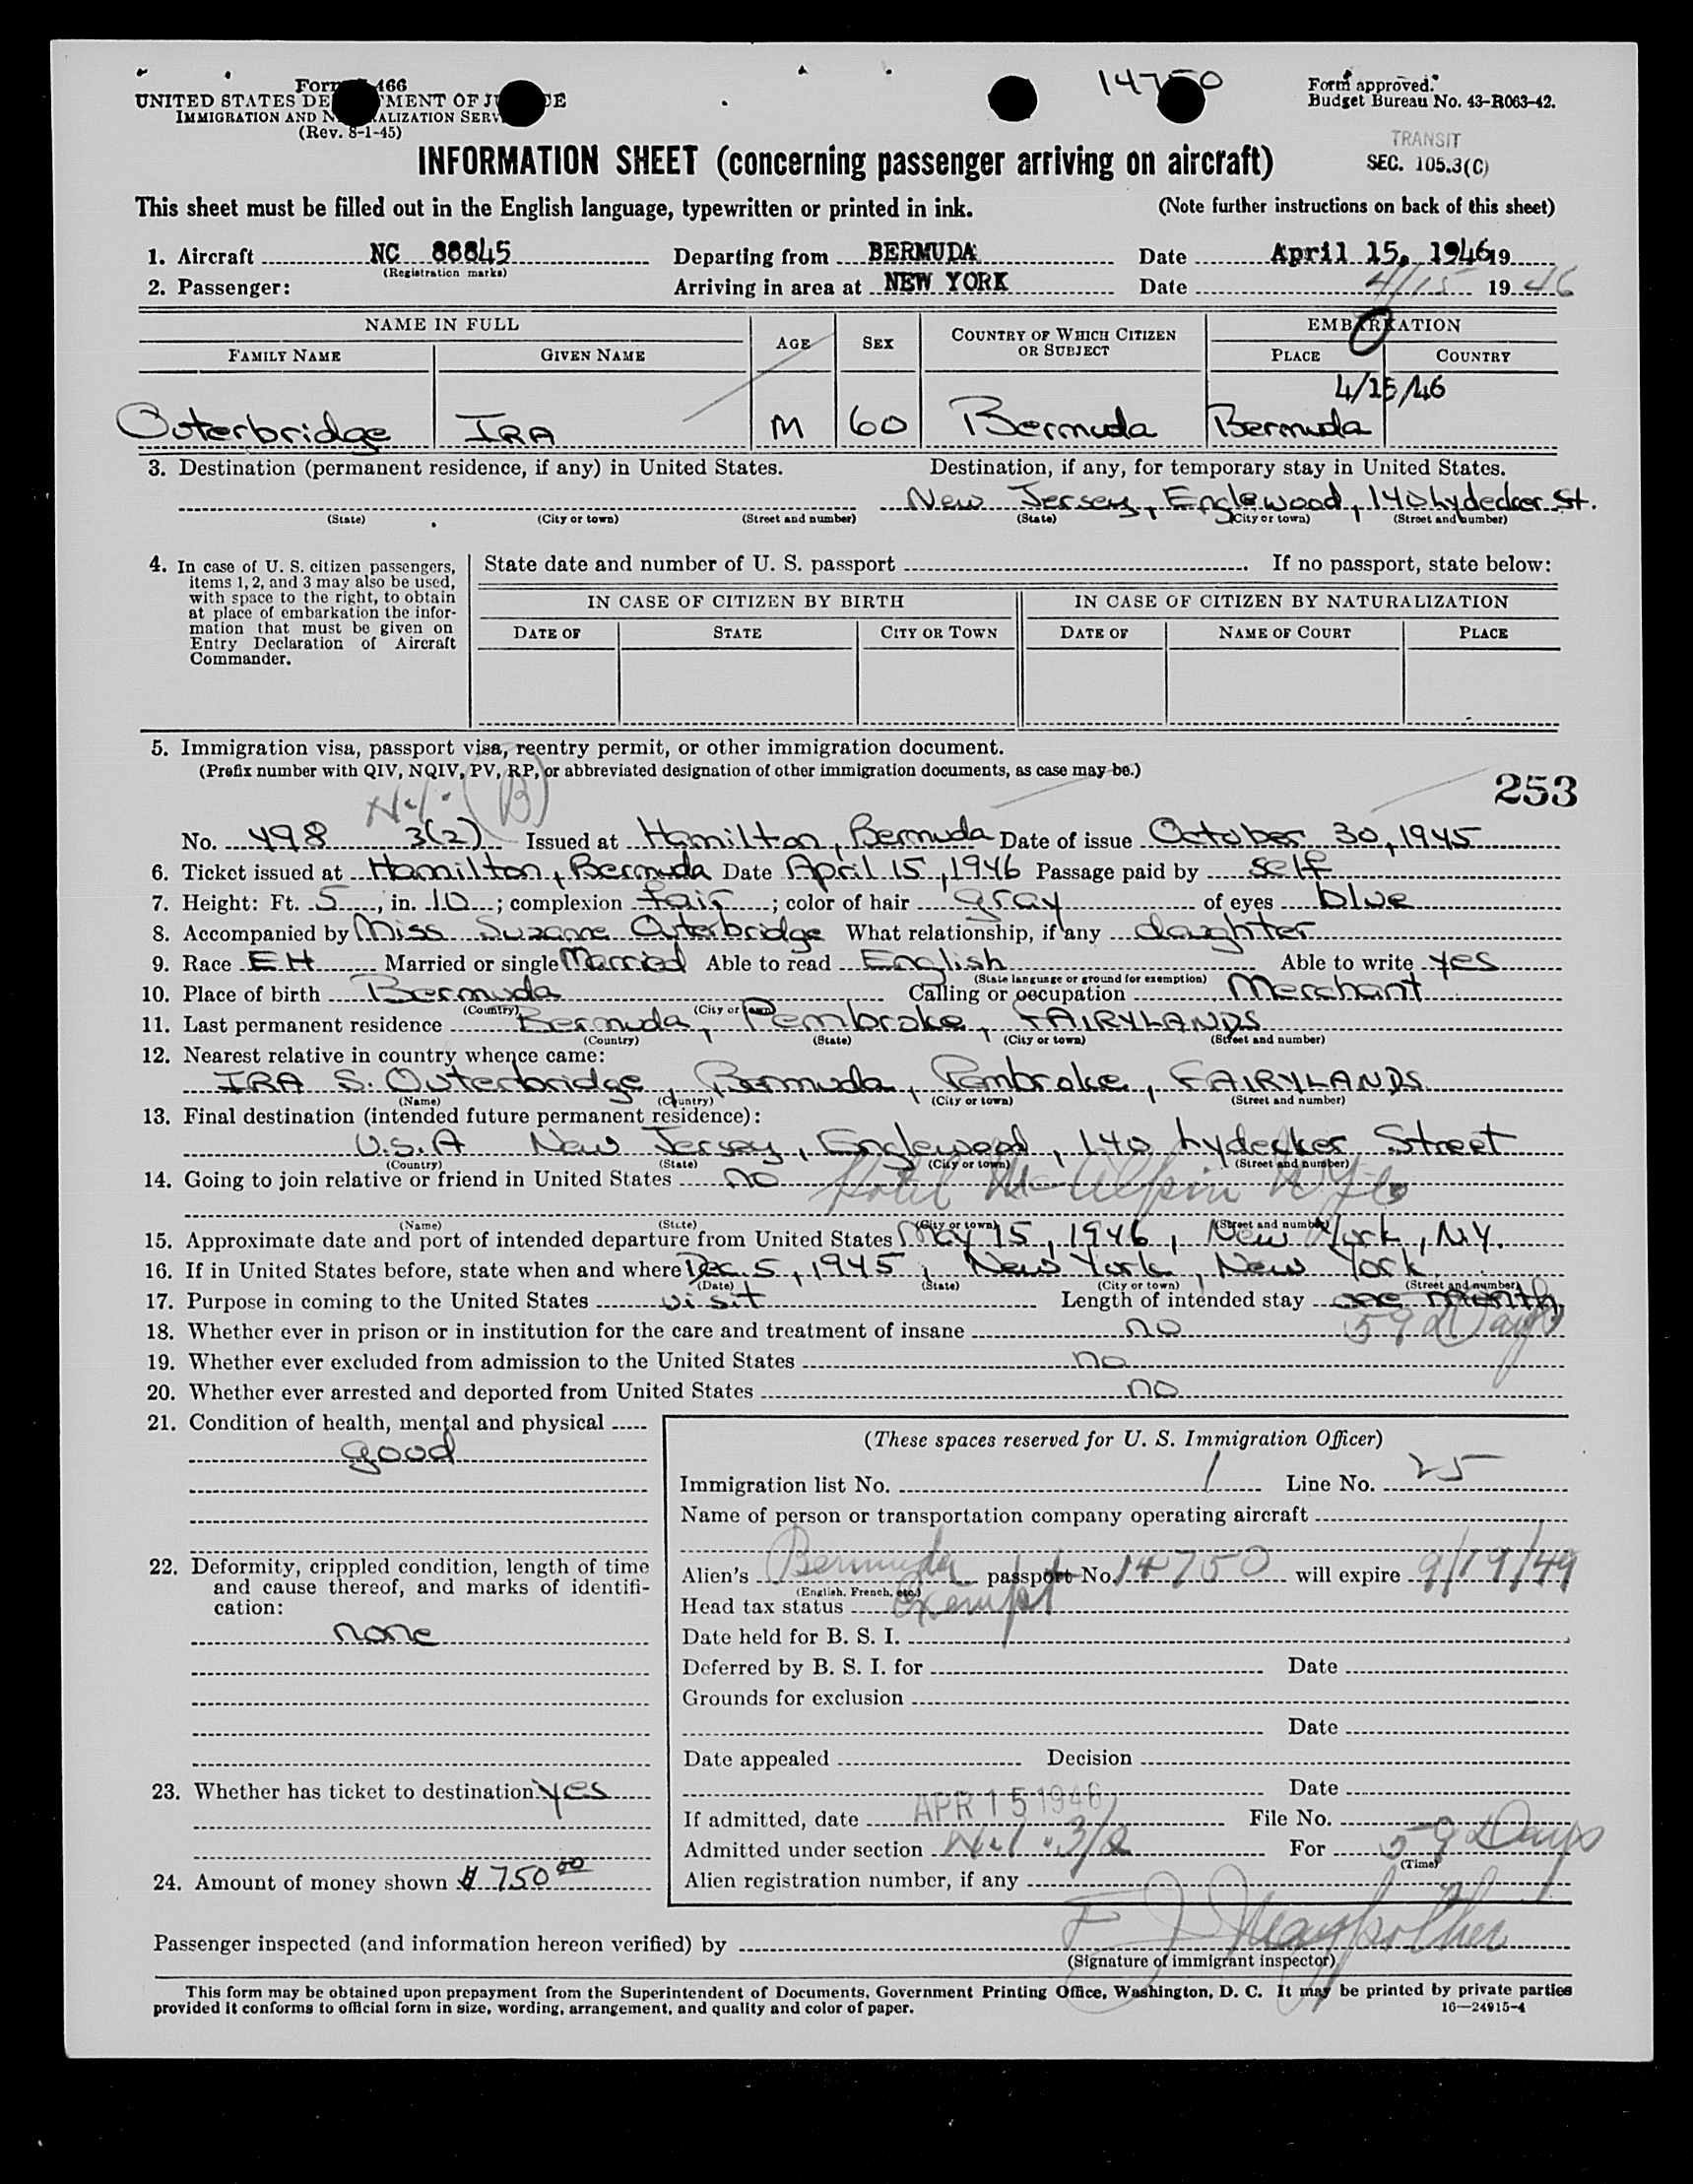 14750
Form 466
UNITED STATES DE MENT OF J CE
IMMIGRATION AND N ALIZATION SERV
(Rev. 8-1-45)
Form approved.
Budget Bureau No. 43-R063-42.
TRANSIT
SEC. 105.3(C)
INFORMATION SHEET (concerning passenger arriving on aircraft)
This sheet must be filled out in the English language, typewritten or printed in ink. (Note further instructions on back of this sheet)
1. Aircraft NC 88845 Departing from BERMUDA Date April 15, 1946 19
(Registration marks)
2. Passenger: Arriving in area at NEW YORK Date 4/15 1946
NAME IN FULL AGE SEX COUNTRY OF WHICH CITIZEN OR SUBJECT EMBARKATION
FAMILY NAME GIVEN NAME PLACE COUNTRY
4/15/46
Outerbridge IRA M 60 Bermuda Bermuda
3. Destination (permanent residence, if any) in United States. Destination, if any, for temporary stay in United States.
New Jersey, Englewood, 140 Lydecker St.
(State) (City or town) (Street and number) (State) (City or town) (Street and number)
4. In case of U. S. citizen passengers, items 1, 2, and 3 may also be used, with space to the right, to obtain at place of embarkation the information that must be given on Entry Declaration of Aircraft Commander.
State date and number of U. S. passport If no passport, state below:
IN CASE OF CITIZEN BY BIRTH IN CASE OF CITIZEN BY NATURALIZATION
DATE OF STATE CITY OR TOWN DATE OF NAME OF COURT PLACE
5. Immigration visa, passport visa, reentry permit, or other immigration document.
(Prefix number with QIV, NQIV, PV, RP, or abbreviated designation of other immigration documents, as case may be.)
253
(B)
No. 498 3(2) Issued at Hamilton, Bermuda Date of issue October 30, 1945
6. Ticket issued at Hamilton, Bermuda Date April 15, 1946 Passage paid by self
7. Height: Ft. 5, in. 10; complexion fair; color of hair gray of eyes blue
8. Accompanied by Miss Suzanne Outerbridge What relationship, if any daughter
9. Race EH Married or single Married Able to read English Able to write yes
(State language or ground for exemption)
10. Place of birth Bermuda Calling or occupation Merchant
(Country) (City or town)
11. Last permanent residence Bermuda, Pembroke, FAIRYLANDS
(Country) (State) (City or town) (Street and number)
12. Nearest relative in country whence came:
IRA S. Outerbridge, Bermuda, Pembroke, FAIRYLANDS
(Name) (Country) (City or town) (Street and number)
13. Final destination (intended future permanent residence):
U.S.A New Jersey, Englewood, 140 Lydecker Street
(Country) (State) (City or town) (Street and number)
14. Going to join relative or friend in United States no Hotel McAlpin
(Name) (State) (City or town) (Street and number)
15. Approximate date and port of intended departure from United States May 15, 1946, New York, N.Y.
16. If in United States before, state when and where Dec. 5, 1945, New York, New York
(Date) (State) (City or town) (Street and number)
17. Purpose in coming to the United States visit Length of intended stay one month
59 Days
18. Whether ever in prison or in institution for the care and treatment of insane no
19. Whether ever excluded from admission to the United States no
20. Whether ever arrested and deported from United States no
21. Condition of health, mental and physical
good
22. Deformity, crippled condition, length of time and cause thereof, and marks of identification:
none
23. Whether has ticket to destination yes
24. Amount of money shown $ 750 00
(These spaces reserved for U. S. Immigration Officer)
Immigration list No. 1 Line No. 25
Name of person or transportation company operating aircraft
Alien's Bermuda passport No. 14750 will expire 9/19/49
(English, French, etc.)
Head tax status Exempt
Date held for B. S. I.
Deferred by B. S. I. for Date
Grounds for exclusion
Date
Date appealed Decision
Date
If admitted, date APR 15 1946 File No.
Admitted under section 3/2 For 59 Days
(Time)
Alien registration number, if any
Passenger inspected (and information hereon verified) by
(Signature of immigrant inspector)
This form may be obtained upon prepayment from the Superintendent of Documents, Government Printing Office, Washington, D. C. It may be printed by private parties
provided it conforms to official form in size, wording, arrangement, and quality and color of paper. 16—24915-4